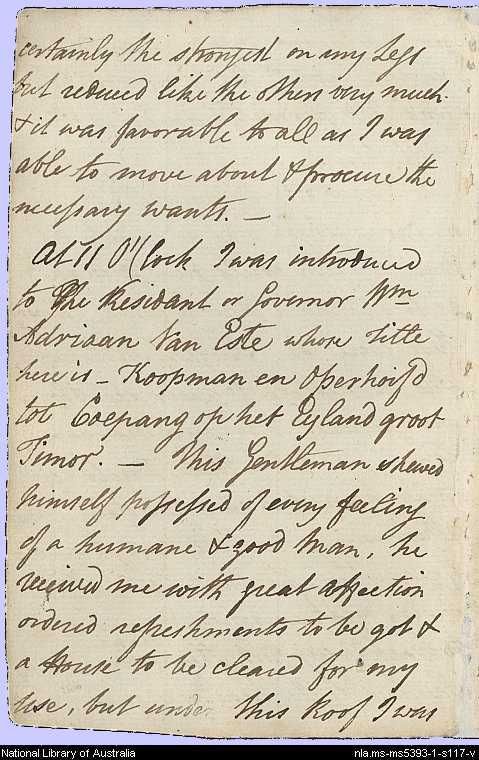 certainly the strongest on my Legs
but reduced like the others very much
& it was favorable to all as I was
able to move about & procure the
necessary wants. —
At 11 O'Clock I was introduced
to The Resident or Governor Wm
Adriaan Van Este whose Title
here is – Koopman en Operhoifd
tot Coepang op het Eyland groot
Timor. — This Gentleman shewed
himself possessed of every feeling
of a humane & good Man, he
received me with great affection
ordered refreshments to be got &
a House to be cleared for my
use, but under this Roof I was
National Library of Australia
nla.ms-ms5393-1-s117-v